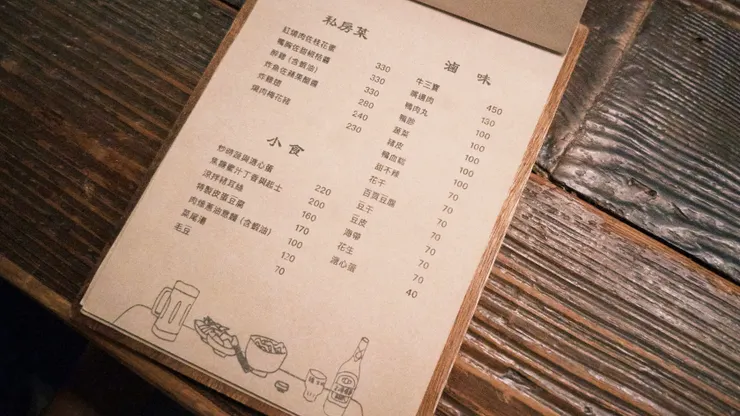 私房菜
紅燒肉佐桂花蜜 330
鴨胸佐甜椒桔醬 330
醉雞(含蝦油) 330
炸魚佐蘋果醋醬 280
炸雞翅 240
燒肉梅花豬 230
小食
炒時蔬與溏心蛋 220
焦糖蜜汁丁香與起士 200
涼拌豬耳絲 160
特製皮蛋豆腐 170
肉燥蔥油意麵(含蝦油) 100
菜尾湯 120
毛豆 70
滷味
牛三寶 450
嘴邊肉 130
鴨肉丸 100
鴨胗 100
蔬菜 100
豬皮 100
鴨血糕 100
甜不辣 70
花干 70
百頁豆腐 70
豆干 70
豆皮 70
海帶 70
花生 70
溏心蛋 40